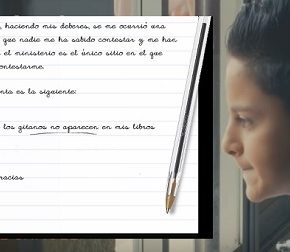 , haciendo mis deberes, se me ocurrió una
que nadie me ha sabido contestar y me han
el ministerio es el único sitio en el que
ontestarme.
nta es la siguiente:
los gitanos no aparecen en mis libros
racias